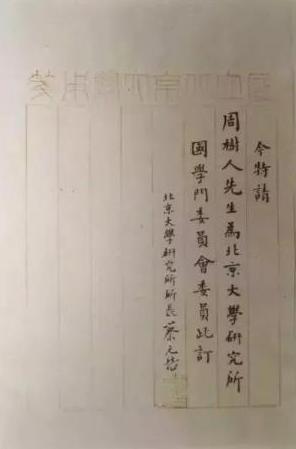 今特請
周樹人先生為北京大學研究所
國學門委員會委員此訂
北京大學研究所所長蔡元培